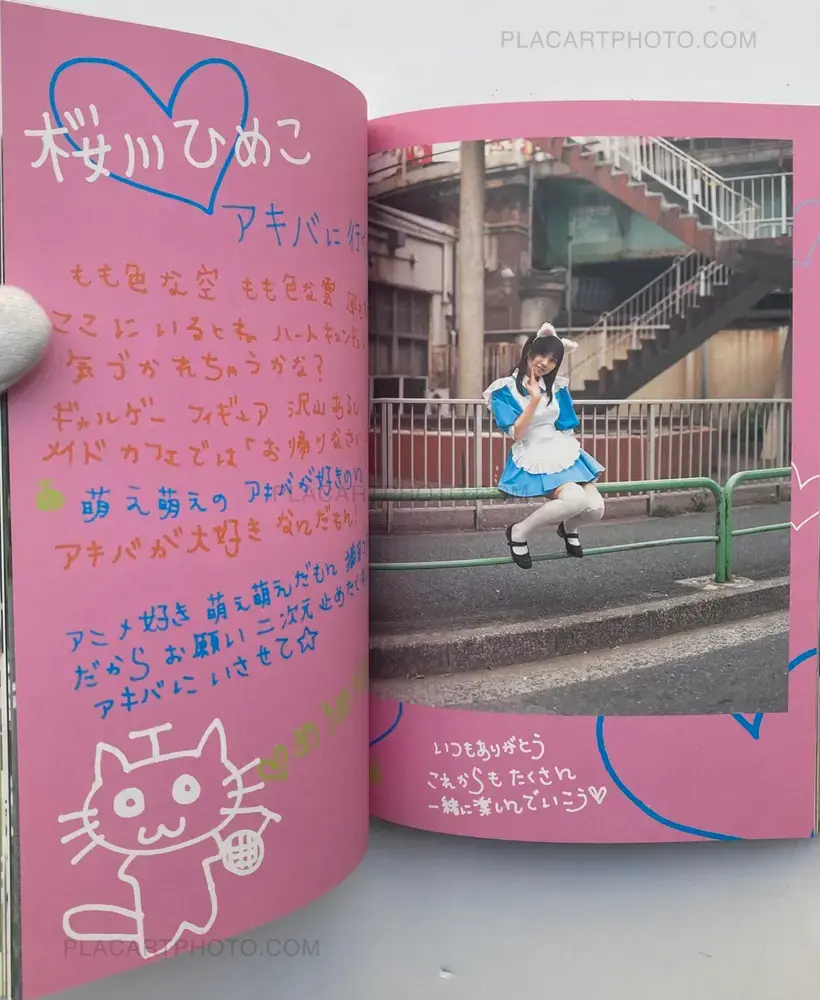 PLACARTPHOTO.COM
桜川ひめこ
アキバに行
もも色な空 もも色な雲
ここにいるとね ハートキュン
気づかれちゃうかな?
ギャルゲー フィギュア 沢山あるし
メイドカフェでは「お帰りなさい
萌え萌えの アキバが好きの
アキバが大好き なんだもん!
アニメ好き 萌え萌えだもん
だからお願い 二次元 止めたく
アキバにいさせて☆
いつもありがとう
これからもたくさん
一緒に楽しんでいこう♡
PLACARTPHOTO.COM
PLACARTPHOTO.COM